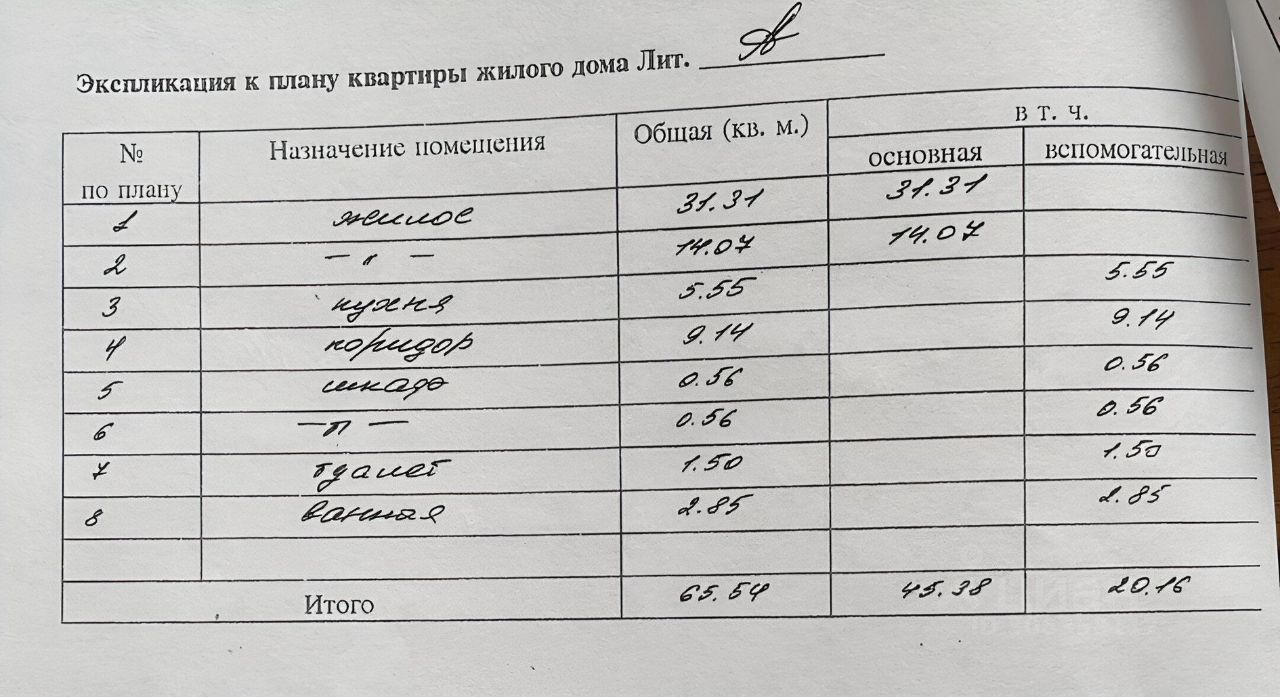 Экспликация к плану квартиры жилого дома Лит. А
№ по плану Назначение помещения Общая (кв. м.) в т. ч.
основная вспомогательная
1 жилое 31.31 31.31
2 — " — 14.07 14.07
3 кухня 5.55 5.55
4 коридор 9.14 9.14
5 шкаф 0.56 0.56
6 — " — 0.56 0.56
7 туалет 1.50 1.50
8 ванная 2.85 2.85
Итого 65.54 45.38 20.16